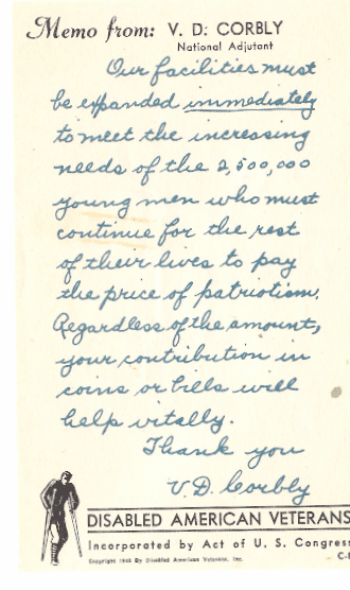 Memo from: V. D. CORBLY
National Adjutant
Our facilities must
be expanded immediately
to meet the increasing
needs of the 2,500,000
young men who must
continue for the rest
of their lives to pay
the price of patriotism.
Regardless of the amount,
your contribution in
coins or bills will
help vitally.
Thank you
V. D. Corbly
DISABLED AMERICAN VETERANS
Incorporated by Act of U. S. Congress
Copyright By Disabled American Veterans, Inc.